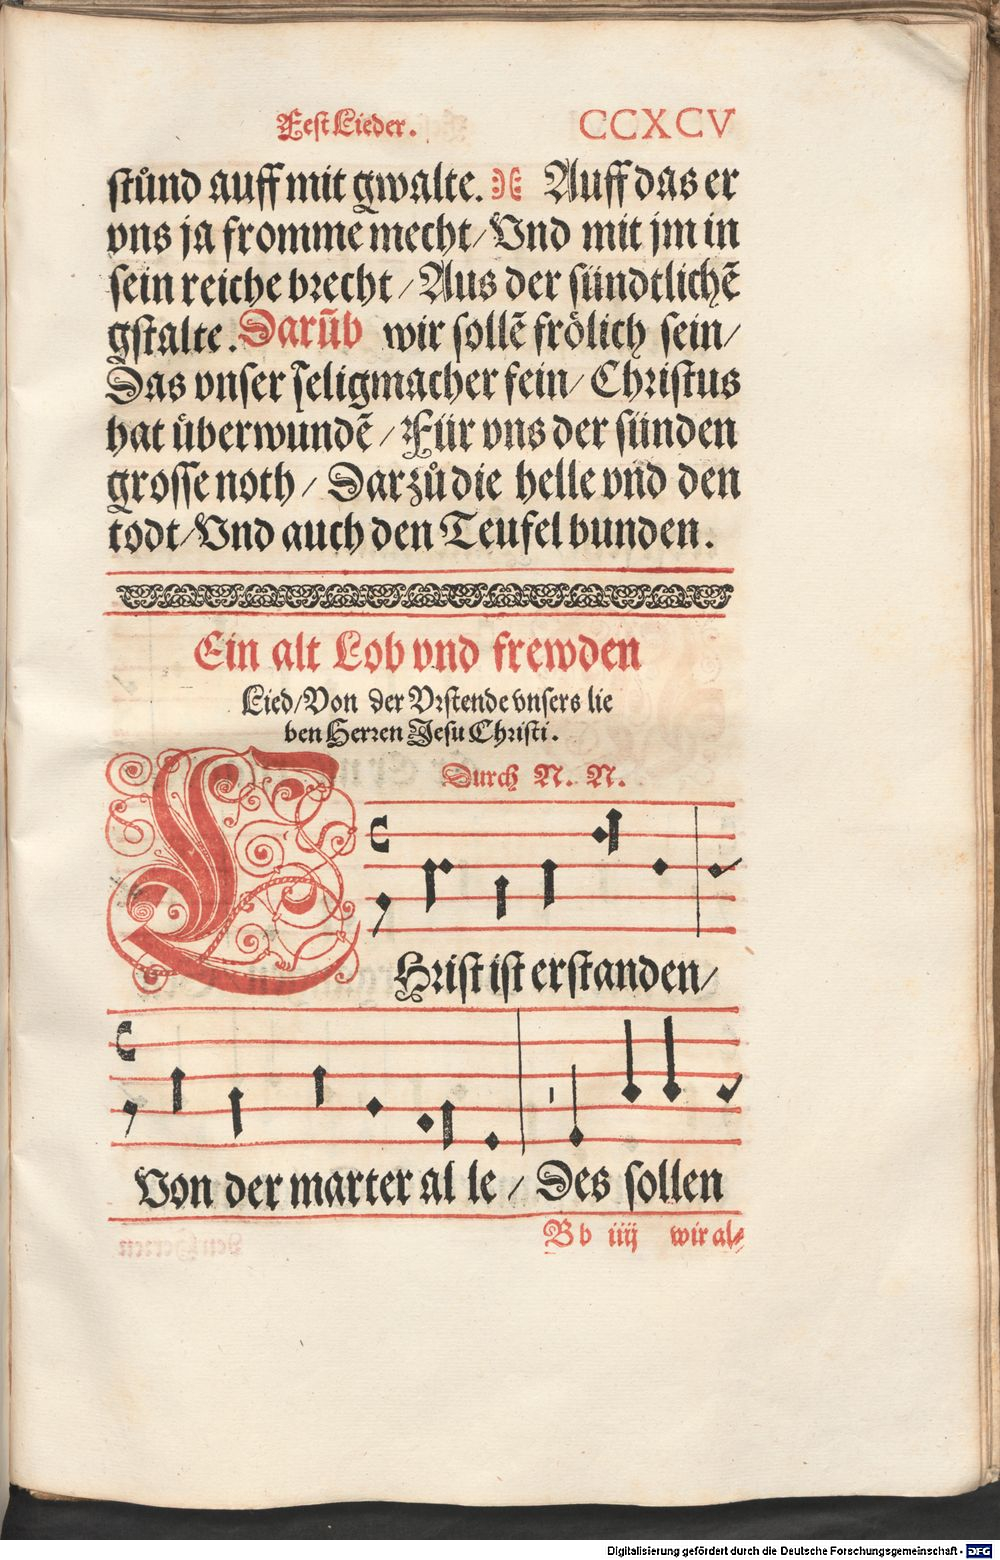 Fest Lieder. CCXCV
stůnd auff mit gwalte. Auff das er
vns ja fromme mecht/ Vnd mit jm in
sein reiche brecht/ Aus der sündtlichē
gstalte. Darūb wir sollē frölich sein/
Das vnser seligmacher fein/ Christus
hat üherwundē/ Für vns der sünden
grosse noth/ Darzů die helle vnd den
todt/ Vnd auch den Teufel bunden.
Ein alt Lob vnd frewden
Lied/ Von der Vrstende vnsers lie
ben Herren Jesu Christi.
Durch N. N.
CHrist ist erstanden/
Von der marter al le/ Des sollen
Bb iiij wir al⸗
Digitalisierung gefördert durch die Deutsche Forschungsgemeinschaft - DFG